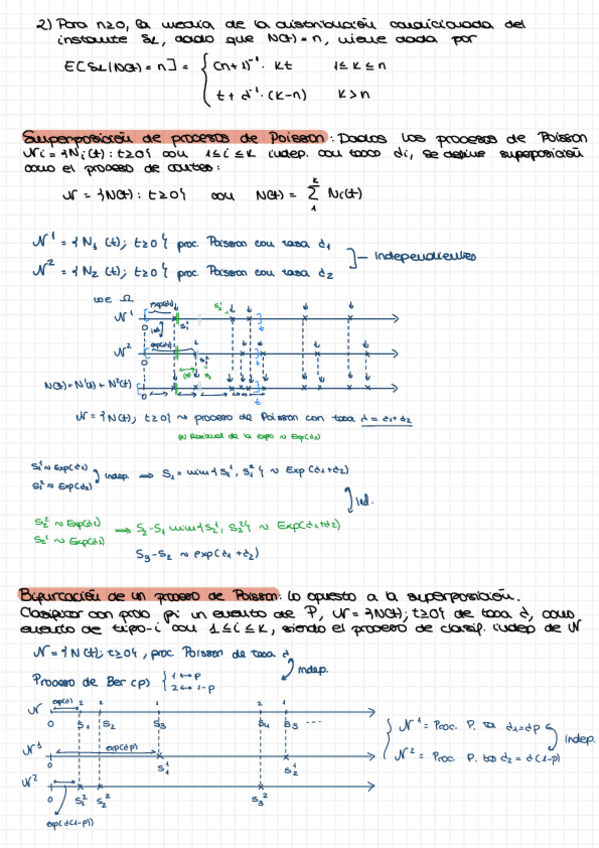 2) Para n≥0, la media de la distribución condicionada del
instante Sk, dado que N(t)=n, viene dada por
E[Sk|N(t)=n] = { (n+1)⁻¹ · kt   1≤k≤n
t + λ⁻¹ · (k-n)   k>n
Superposición de procesos de Poisson: Dados los procesos de Poisson
Ni = {Ni(t): t≥0} con 1≤i≤k indep. con tasa λi, se define superposición
como el proceso de conteo:
N = {N(t): t≥0} con N(t) = Σ₁ᵏ Ni(t)
N¹ = {N₁(t); t≥0} proc. Poisson con tasa λ1
N² = {N₂(t); t≥0} proc. Poisson con tasa λ2
Independientes
ω∈ Ω
exp(λ1)
N¹
0
S₁¹
ind.
exp(λ2)
N²
0
S₁²
N(t) = N¹(t) + N²(t)
0
t
N = {N(t); t≥0} ~ proceso de Poisson con tasa λ = λ1+λ2
(*) Residual de la expo ~ Exp(λ2)
S₁¹ ~ Exp(λ1)
S₁² ~ Exp(λ2)
indep. → S₁ = min{S₁¹, S₁²} ~ Exp(λ1+λ2)
Ind.
S₂² ~ Exp(λ2)
S₂¹ ~ Exp(λ1)
→ S₂-S₁ min{S₂¹, S₂²} ~ Exp(λ1+λ2)
S₃-S₂ ~ exp(λ1+λ2)
Bifurcación de un proceso de Poisson: lo opuesto a la superposición.
Clasificar con prob. pi un evento de P, N = {N(t); t≥0} de tasa λ, como
evento de tipo-i con 1≤i≤k, siendo el proceso de clasif. indep de N
N = {N(t); t≥0}, proc. Poisson de tasa λ
Indep.
Proceso de Ber(p) { 1 ↔ p
2 ↔ 1-p
exp(λ) 2 2 1 2 1
N
0 S₁ S₂ S₃ S₄ S₅ ...
exp(λp)
N¹
0 S₁¹ S₂¹
N²
0 S₁² S₂² S₃²
exp(λ(1-p))
N¹ = Proc. P. ta λ1=λp
N² = Proc. P. ta λ2 = λ(1-p)
Indep.